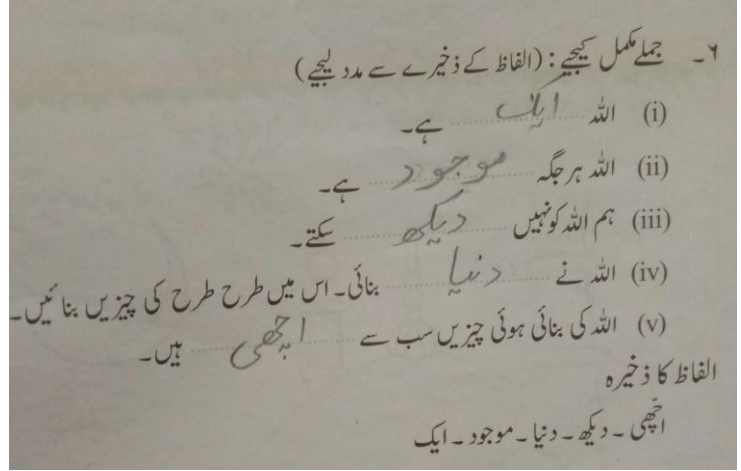 ۶۔ جملے مکمل کیجیے: (الفاظ کے ذخیرے سے مدد لیجیے)
(i) اللہ ایک ہے۔
(ii) اللہ ہر جگہ موجود ہے۔
(iii) ہم اللہ کو نہیں دیکھ سکتے۔
(iv) اللہ نے دنیا بنائی۔ اس میں طرح طرح کی چیزیں بنائیں۔
(v) اللہ کی بنائی ہوئی چیزیں سب سے اچھی ہیں۔
الفاظ کا ذخیرہ
اچّھی ۔ دیکھ ۔ دنیا ۔ موجود ۔ ایک